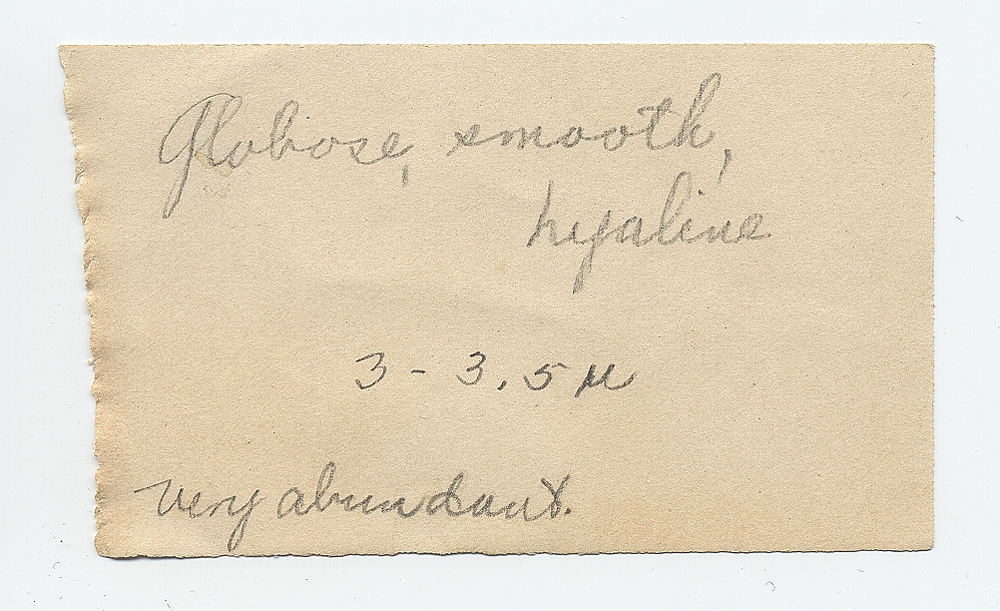 Globose, smooth,
hyaline
3 - 3.5 µ
very abundant.